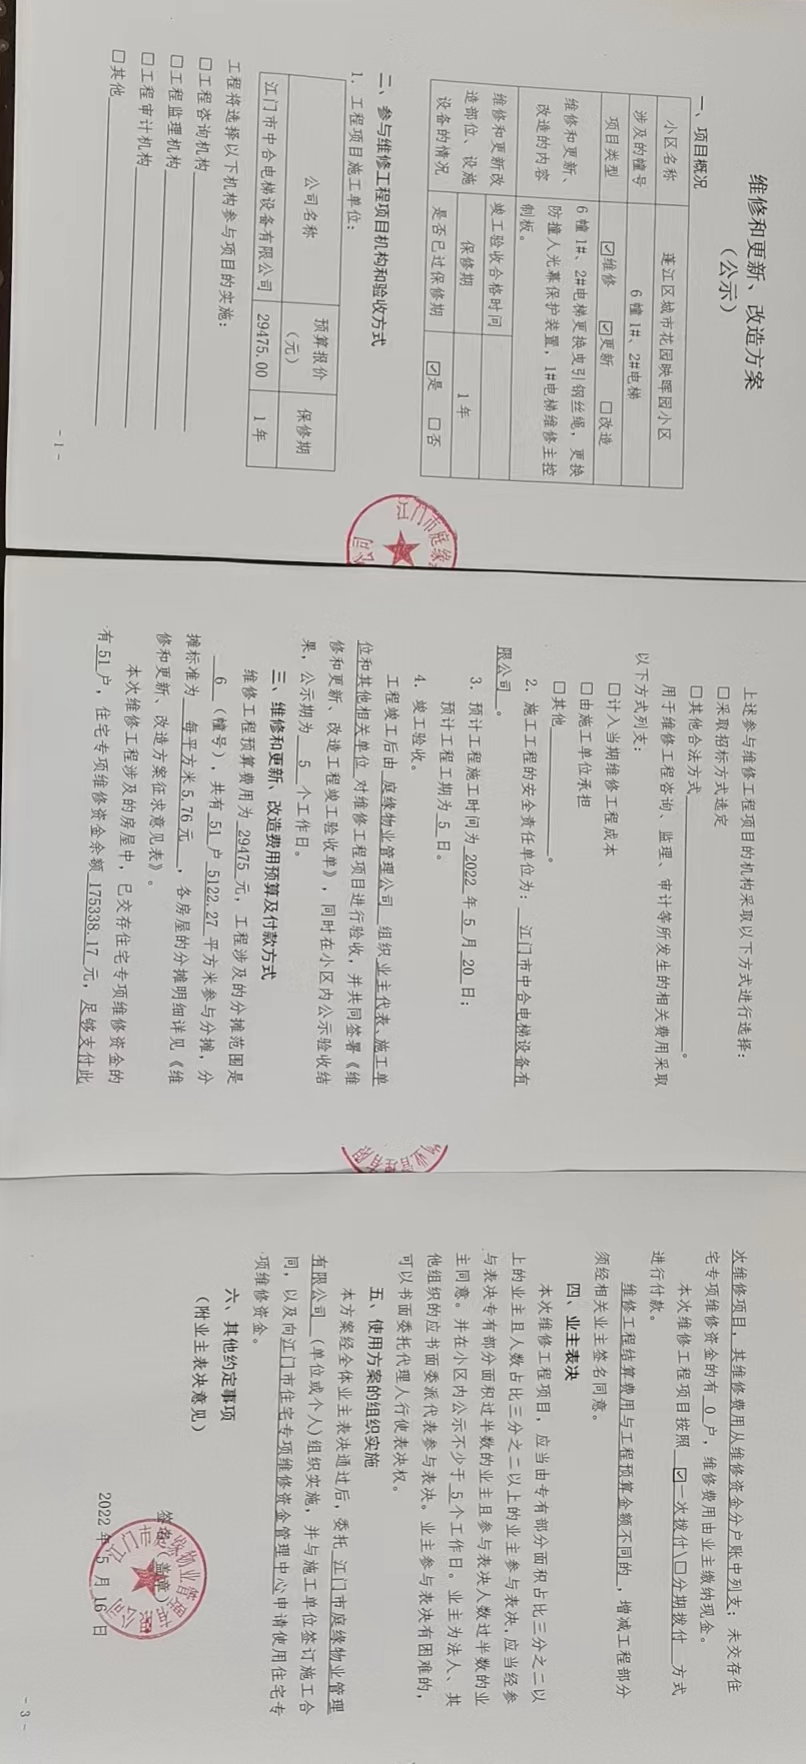 维修和更新、改造方案
（公示）
一、项目概况
小区名称 蓬江区城市花园映晖园小区
涉及的幢号 6幢1#、2#电梯
项目类型 ☑维修 ☑更新 □改造
维修和更新、改造的内容 6幢1#、2#电梯更换曳引钢丝绳，更换
防撞人光幕保护装置，1#电梯维修主控
制板。
维修和更新改造部位、设施设备的情况 竣工验收合格时间
保修期 1年
是否已过保修期 ☑是 □否
二、参与维修工程项目机构和验收方式
1. 工程项目施工单位：
公司名称 预算报价（元） 保修期
江门市中合电梯设备有限公司 29475.00 1年
工程将选择以下机构参与项目的实施：
□工程咨询机构
□工程监理机构
□工程审计机构
□其他
- 1 -
江门市庭缘
上述参与维修工程项目的机构采取以下方式进行选择：
□采取招标方式选定
□其他合法方式 。
用于维修工程咨询、监理、审计等所发生的相关费用采取
以下方式列支：
□计入当期维修工程成本
□由施工单位承担
□其他 。
2. 施工工程的安全责任单位为： 江门市中合电梯设备有
限公司 。
3. 预计工程施工时间为 2022 年 5 月 20 日；
预计工程工期为 5 日。
4. 竣工验收。
工程竣工后由 庭缘物业管理公司 组织 业主代表、施工单
位和其他相关单位 对维修工程项目进行验收，并共同签署《维
修和更新、改造工程竣工验收单》，同时在小区内公示验收结
果，公示期为 5 个工作日。
三、维修和更新、改造费用预算及付款方式
维修工程预算费用为 29475 元，工程涉及的分摊范围是
6 （幢号），共有 51 户 5122.27 平方米参与分摊，分
摊标准为 每平方米5.76元 ，各房屋的分摊明细详见《维
修和更新、改造方案征求意见表》。
本次维修工程涉及的房屋中，已交存住宅专项维修资金的
有 51 户，住宅专项维修资金余额 175338.17 元，足够支付此
次维修项目，其维修费用从维修资金分户账中列支；未交存住
宅专项维修资金的有 0 户，维修费用由业主缴纳现金。
本次维修工程项目按照 ☑一次拨付\□分期拨付 方式
进行付款。
维修工程结算费用与工程预算金额不同的 ，增减工程部分
须经相关业主签名同意。
四、业主表决
本次维修工程项目，应当由专有部分面积占比三分之二以
上的业主且人数占比三分之二以上的业主参与表决，应当经参
与表决专有部分面积过半数的业主且参与表决人数过半数的业
主同意。并在小区内公示不少于 5 个工作日。业主为法人、其
他组织的应书面委派代表参与表决。业主参与表决有困难的，
可以书面委托代理人行使表决权。
五、使用方案的组织实施
本方案经全体业主表决通过后，委托 江门市庭缘物业管理
有限公司 （单位或个人）组织实施，并与施工单位签订施工合
同，以及向江门市住宅专项维修资金管理中心申请使用住宅专
项维修资金。
六、其他约定事项
（附业主表决意见）
签名（盖章）
2022 年 5 月 16 日
- 3 -